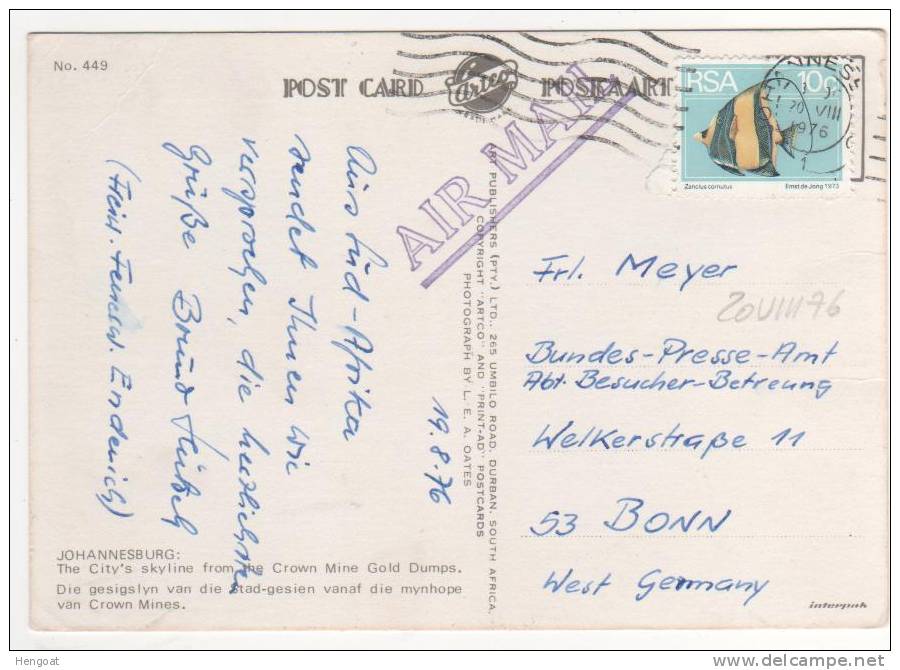 No. 449
POST CARD
Artco
POSKAART
RSA 10c
Zanclus cornutus
Ernst de Jong 1973
20 VIII
1976
1
AIR MAIL
19.8.76
Aus Süd-Afrika
sendet Ihnen wie
versprochen, die herzlichsten
Grüße Bruno
(Frein. Endenich)
ART PUBLISHERS (PTY.) LTD., 265 UMBILO ROAD, DURBAN, SOUTH AFRICA.
COPYRIGHT "ARTCO" AND "PRINT-AD" POSTCARDS
PHOTOGRAPH BY L. E. A. OATES
Frl. Meyer
20VIII76
Bundes-Presse-Amt
Abt. Besucher-Betreung
Welkerstraße 11
53 BONN
West Germany
JOHANNESBURG:
The City's skyline from the Crown Mine Gold Dumps.
Die gesigslyn van die stad-gesien vanaf die mynhope
van Crown Mines.
interpak
Hengoat